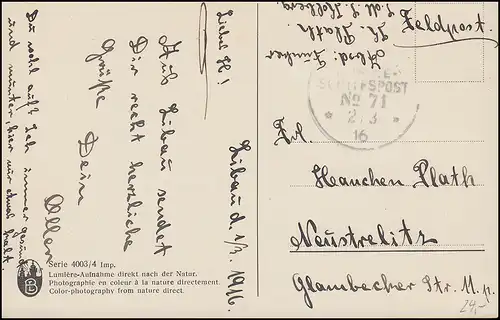 Feldpost.
Absd: Funker
H. Plath
S.M.S. Kolberg.
SCHIFFSPOST
No 71
* 2/3 *
16
Libau d. 1/3. 1916.
Liebe H.!
Aus Libau sendet
Dir recht herzliche
Grüße Dein
Du wohl auf? Ich immer gesund
und munter, hier nur etwas kalt.
Frl.
Hanchen Plath
Neustrelitz
Glambecker Str. 11. p.
24,-
Serie 4003/4 Imp.
Lumière-Aufnahme direkt nach der Natur.
Photographie en couleur à la nature directement.
Color-photography from nature direct.